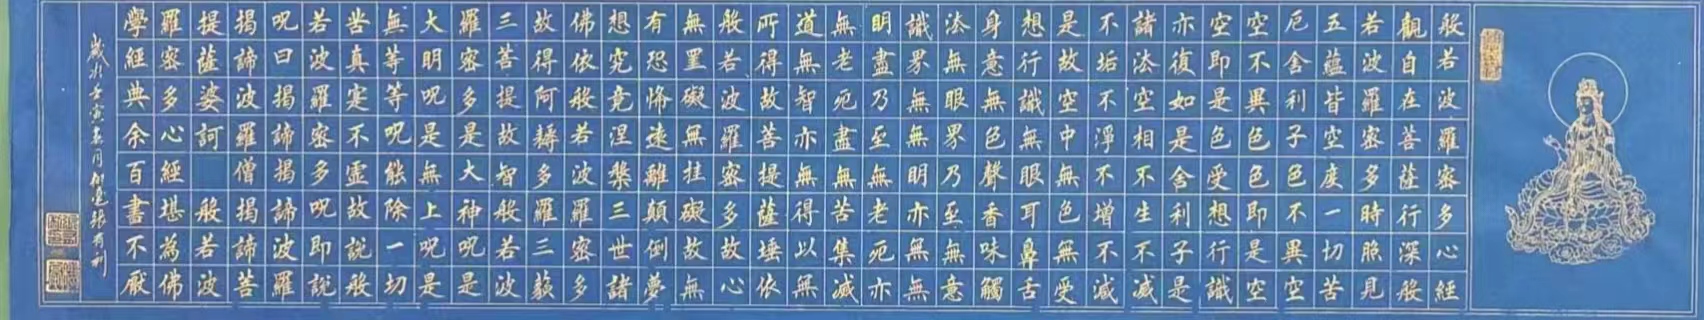 般若波羅密多心經
觀自在菩薩行深般
若波羅密多時照見
五蘊皆空度一切苦
厄舍利子色不異空
空不異色色即是空
空即是色受想行識
亦復如是舍利子是
諸法空相不生不滅
不垢不淨不增不減
是故空中無色無受
想行識無眼耳鼻舌
身意無色聲香味觸
法無眼界乃至無意
識界無無明亦無無
明盡乃至無老死亦
無老死盡無苦集滅
道無智亦無得以無
所得故菩提薩埵依
般若波羅密多故心
無罣礙無挂礙故無
有恐怖遠離顛倒夢
想究竟涅槃三世諸
佛依般若波羅密多
故得阿耨多羅三藐
三菩提故智般若波
羅密多是大神呪是
大明呪是無上呪是
無等等呪能除一切
苦真定不虛故說般
若波羅密多呪即說
呪曰揭諦揭諦波羅
揭諦波羅僧揭諦菩
提薩婆訶 般若波
羅密多心經堪為佛
學經典余百書不厭
歲次壬寅春月張有利